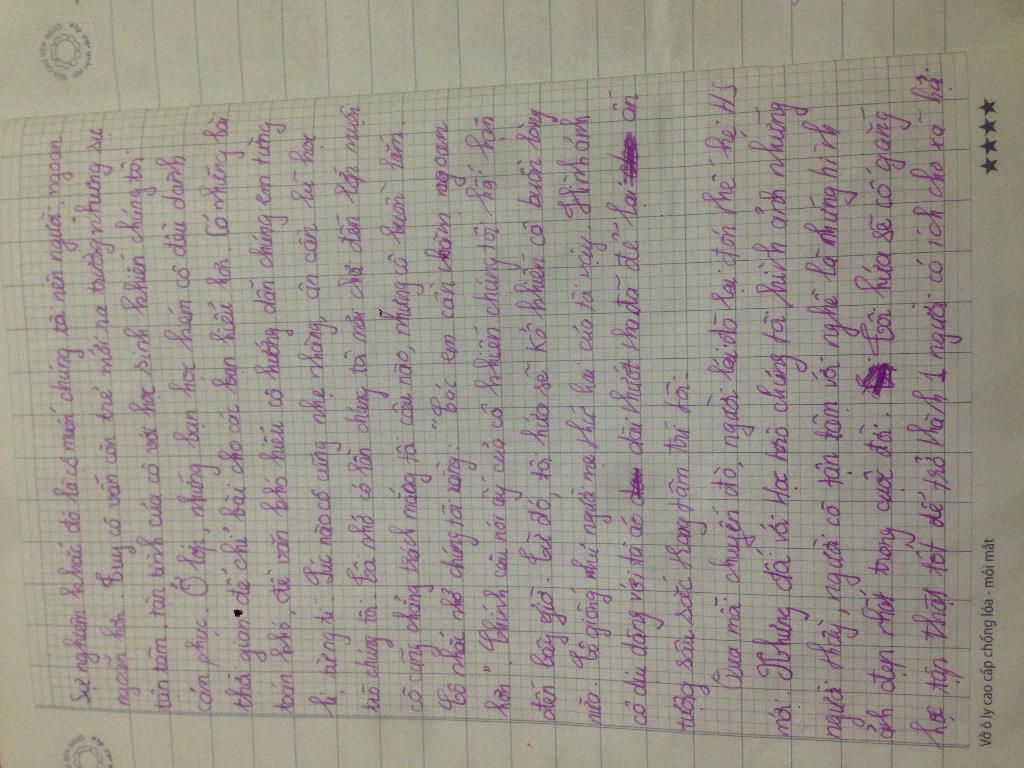 Sự nghiêm khắc đó là cô muốn chúng tôi nên người, ngoan
ngoãn hơn. Tuy cô vẫn còn trẻ mới ra trường nhưng sự
tận tâm, tận tình của cô với học sinh khiến chúng tôi
cảm phục. Ở lớp, những bạn học kém cô đều dành
thời gian để chỉ bài cho các bạn hiểu hơn. Có những bài
toán khó, đề văn khó hiểu cô hướng dẫn chúng em từng
li từng tí. Lúc nào cô cũng nhẹ nhàng, ân cần lũ học
trò chúng tôi. Tôi nhớ có lần chúng tôi mải chơi đến lớp muộn
cô cũng chẳng trách mắng tôi câu nào, nhưng cô buồn lắm.
Cô nhắc nhở chúng tôi rằng: "Các em cần chăm ngoan
hơn". Chính câu nói ấy của cô khiến chúng tôi hối hận
đến bây giờ. Từ đó, tôi hứa sẽ không khiến cô buồn lòng
nữa. Cô giống như người mẹ thứ hai của tôi vậy. Hình ảnh
cô dịu dàng với tà áo dài thướt tha đã để lại ấn
tượng sâu sắc trong tâm trí tôi.
Qua mỗi chuyến đò, người lái đò lại đón thế hệ HS
mới. Nhưng đối với học trò chúng tôi, hình ảnh những
người thầy, người cô tận tâm với nghề là những hình
ảnh đẹp nhất trong cuộc đời. Tôi hứa sẽ cố gắng
học tập thật tốt để trở thành 1 người có ích cho xã hội.
Vở ô ly cao cấp chống lóa - mỏi mắt
★★★★